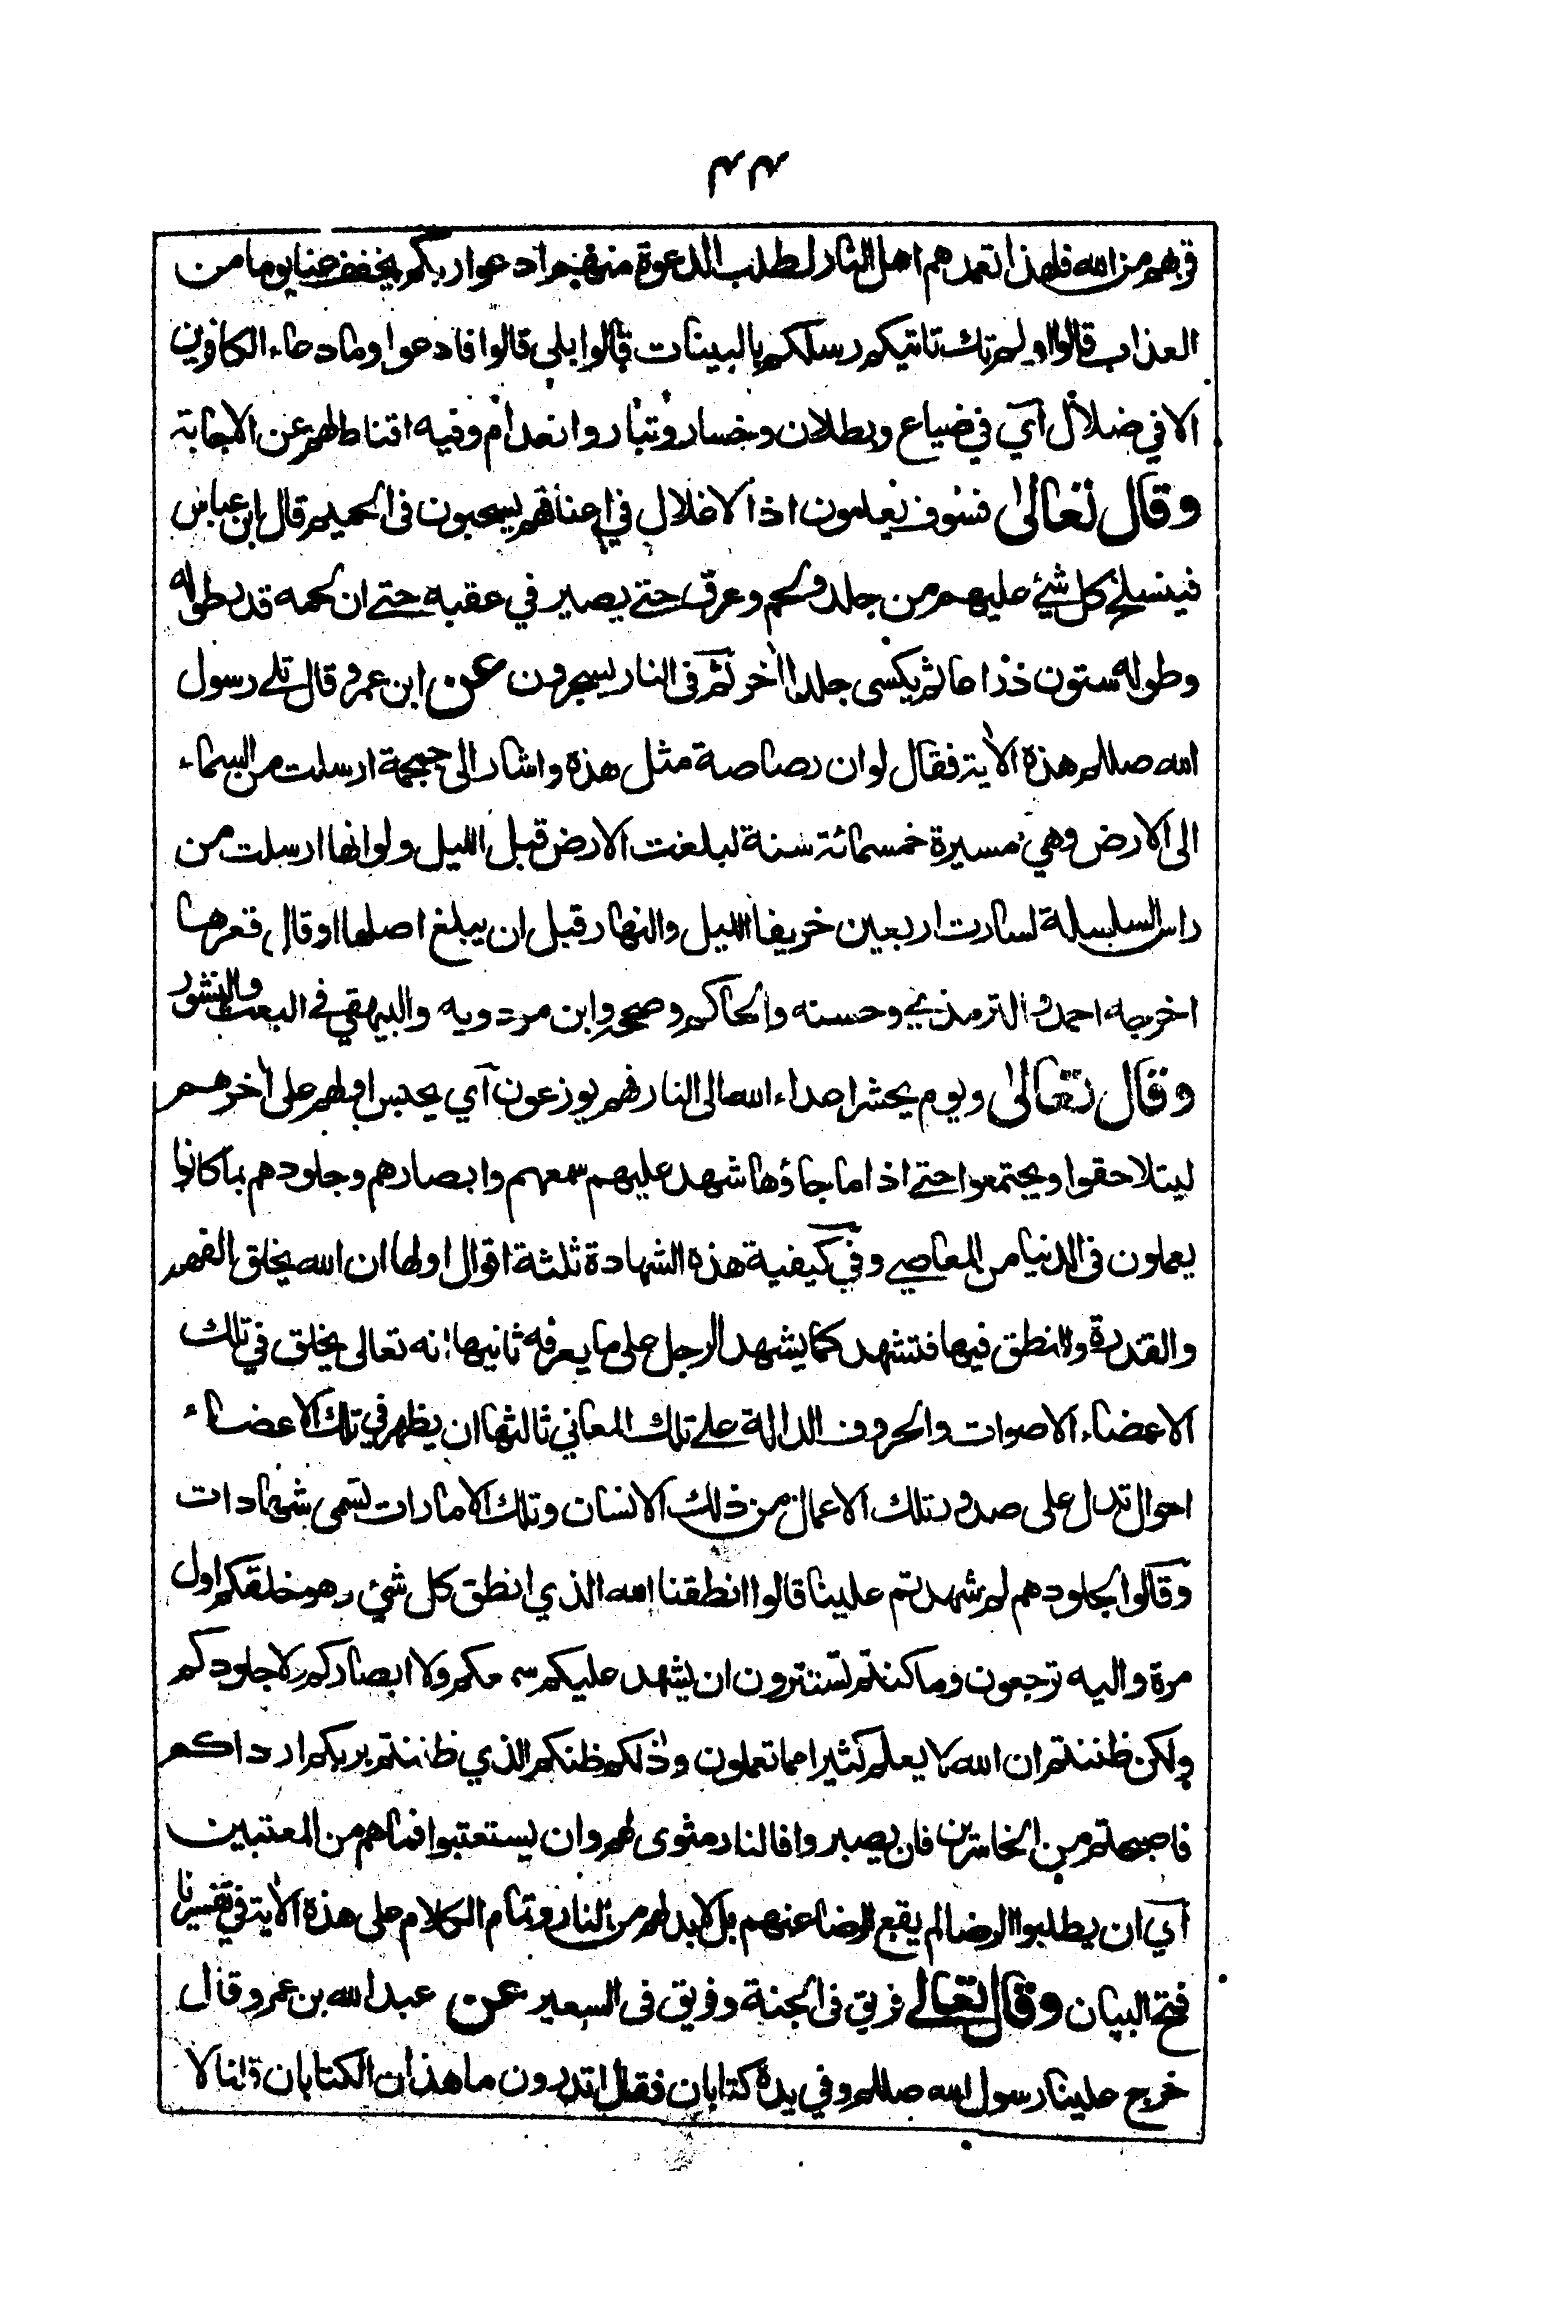 ٤٤
قربهم من الله فلهذا تعمدهم اهل النار لطلب الدعوة منهم ادعوا ربكم يخفف عنا يوما من
العذاب قالوا اولم تك تاتيكم رسلكم بالبينات قالوا بلى قالوا فادعوا وما دعاء الكافرين
الا في ضلال آي في ضياع وبطلان وخسار وتبار وانعدام وفيه اقناط لهم عن الاجابة
وقال تعالىٰ فسوف يعلمون اذ الاغلال في اعناقهم يسحبون فى الحميم قال ابن عباس
فينسلخ كل شئ عليهم من جلد ولحم وعرق حتے يصير في عقبه حتے ان لحمه قدر طوله
وطوله ستون ذراعا ثم يكسى جلدا اٰخر ثم فى النار يسجرون عن ابن عمرو قال تلے رسول
الله صللم هذه الاٰية فقال لو ان رصاصة مثل هذه واشار الى جمجمة ارسلت من السماء
الى الارض وهي مسيرة خمسمائة سنة لبلغت الارض قبل الليل ولو انها ارسلت من
راس السلسلة لسارت اربعين خريفا الليل والنهار قبل ان يبلغ اصلها او قال قعرها
اخرجه احمد والترمذي وحسنه والحاكم وصححه وابن مردويه والبيهقي في البعث والنشور
وقال تعالىٰ ويوم يحشر اعداء الله الى النار فهم يوزعون آي يحبس اولهم على اٰخرهم
ليتلاحقوا ويجتمعوا حتے اذا ما جاؤها شهد عليهم سمعهم وابصارهم وجلودهم بما كانوا
يعملون فى الدنيا من المعاصے وفي كيفية هذه الشهادة ثلثة اقوال اولها ان الله يخلق الفهم
والقدرة والنطق فيها فتشهد كما يشهد الرجل على ما يعرفه ثانيها انه تعالى يخلق في تلك
الاعضاء الاصوات والحروف الدالة علے تلك المعاني ثالثها ان يظهر في تلك الاعضاء
احوال تدل على صدور تلك الاعمال من ذلك الانسان وتلك الامارات تسمى شهادات
وقالوا لجلودهم لم شهدتم علينا قالوا انطقنا الله الذي انطق كل شئ وهو خلقكم اول
مرة واليه ترجعون وما كنتم تستترون ان يشهد عليكم سمعكم ولا ابصاركم ولا جلودكم
ولكن ظننتم ان الله لا يعلم كثيرا مما تعملون وذلكم ظنكم الذي ظننتم بربكم ارداكم
فاصبحتم من الخاسرين فان يصبروا فالنار مثوى لهم وان يستعتبوا فما هم من المعتبين
آي ان يطلبوا الرضا لم يقع الرضا عنهم بل لا بد لهم من النار وتمام الكلام على هذه الاٰية في تفسيرنا
فتح البيان وقال تعالے فريق فى الجنة وفريق فى السعير عن عبد الله بن عمرو قال
خرج علينا رسول الله صللم وفي يده كتابان فقال اتدرون ما هذان الكتابان قلنا لا